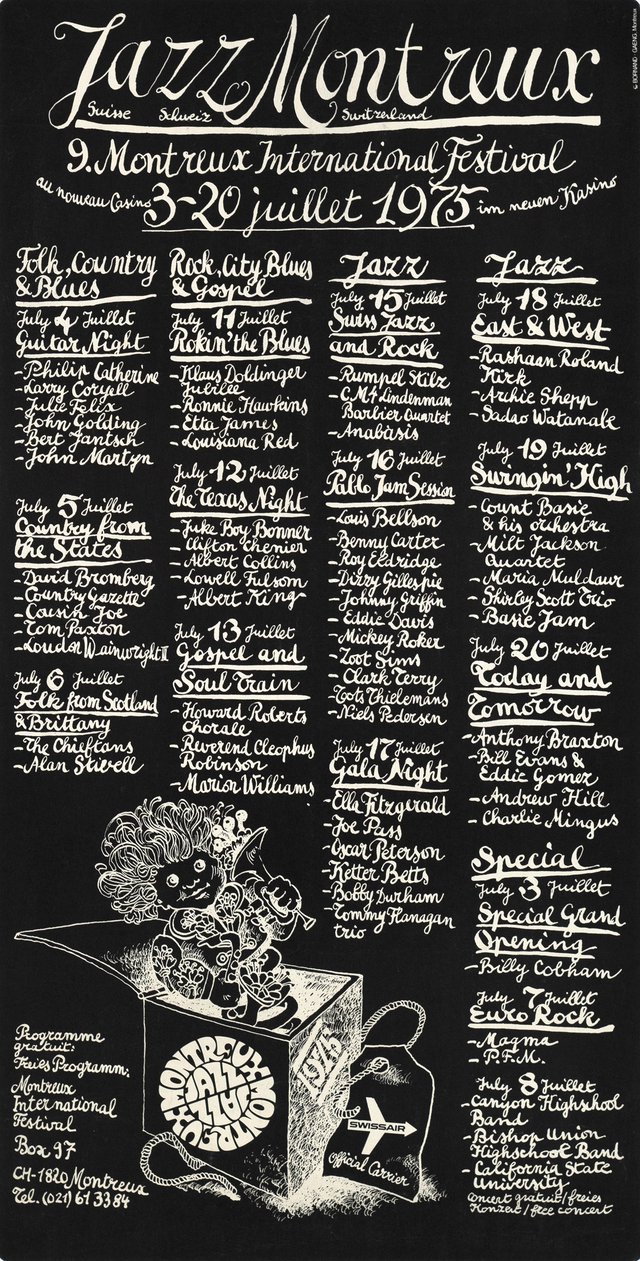 © BORNAND - GAENG. Montreux
Jazz Montreux
Suisse Schweiz Switzerland
9. Montreux International Festival
au nouveau Casino 3-20 juillet 1975 im neuen Kasino
Folk, Country
& Blues
July 4 Juillet
Guitar Night
-Philip Catherine
-Larry Coryell
-Julie Felix
-John Golding
-Bert Jantsch
-John Martyn
July 5 Juillet
Country from
the States
-David Bromberg
-Country Gazette
-Cousin Joe
-Tom Paxton
-Loudon Wainwright III
July 6 Juillet
Folk from Scotland
& Brittany
-The Chieftans
-Alan Stivell
Rock, City Blues
& Gospel
July 11 Juillet
Rokin' the Blues
-Klaus Doldinger
Jubilee
-Ronnie Hawkins
-Etta James
-Louisiana Red
July 12 Juillet
The Texas Night
-Juke Boy Bonner
-Clifton Chenier
-Albert Collins
-Lowell Fulsom
-Albert King
July 13 Juillet
Gospel and
Soul Train
-Howard Roberts
Chorale
-Reverend Cleophus
Robinson
-Marion Williams
Jazz
July 15 Juillet
Swiss Jazz
and Rock
-Rumpel Stilz
-CM4 Lindenman
Barbier Quartet
-Anabasis
July 16 Juillet
Pablo Jam Session
-Louis Bellson
-Benny Carter
-Roy Eldridge
-Dizzy Gillespie
-Johnny Griffin
-Eddie Davis
-Mickey Roker
-Zoot Sims
-Clark Terry
-Toots Thielemans
-Niels Pedersen
July 17 Juillet
Gala Night
-Ella Fitzgerald
-Joe Pass
-Oscar Peterson
-Ketter Betts
-Bobby Durham
-Tommy Flanagan
trio
Jazz
July 18 Juillet
East & West
-Rashaan Roland
Kirk
-Archie Shepp
-Sadao Watanabe
July 19 Juillet
Swingin' High
-Count Basie
& his orchestra
-Milt Jackson
Quartet
-Maria Muldaur
-Shirley Scott Trio
-Basie Jam
July 20 Juillet
Today and
Tomorrow
-Anthony Braxton
-Bill Evans &
Eddie Gomez
-Andrew Hill
-Charlie Mingus
Special
July 3 Juillet
Special Grand
Opening
-Billy Cobham
July 7 Juillet
Euro Rock
-Magma
-P.F.M.
July 8 Juillet
-Canyon Highschool
Band
-Bishop Union
Highschool Band
-California State
University
Concert gratuit/freies
Konzert/free concert
Programme
gratuit:
Freies Programm:
Montreux
International
Festival
Box 97
CH-1820 Montreux
Tel. (021) 61 33 84
MONTREUX MONTREUX
JAZZ JAZZ
1975
SWISSAIR
Official Carrier